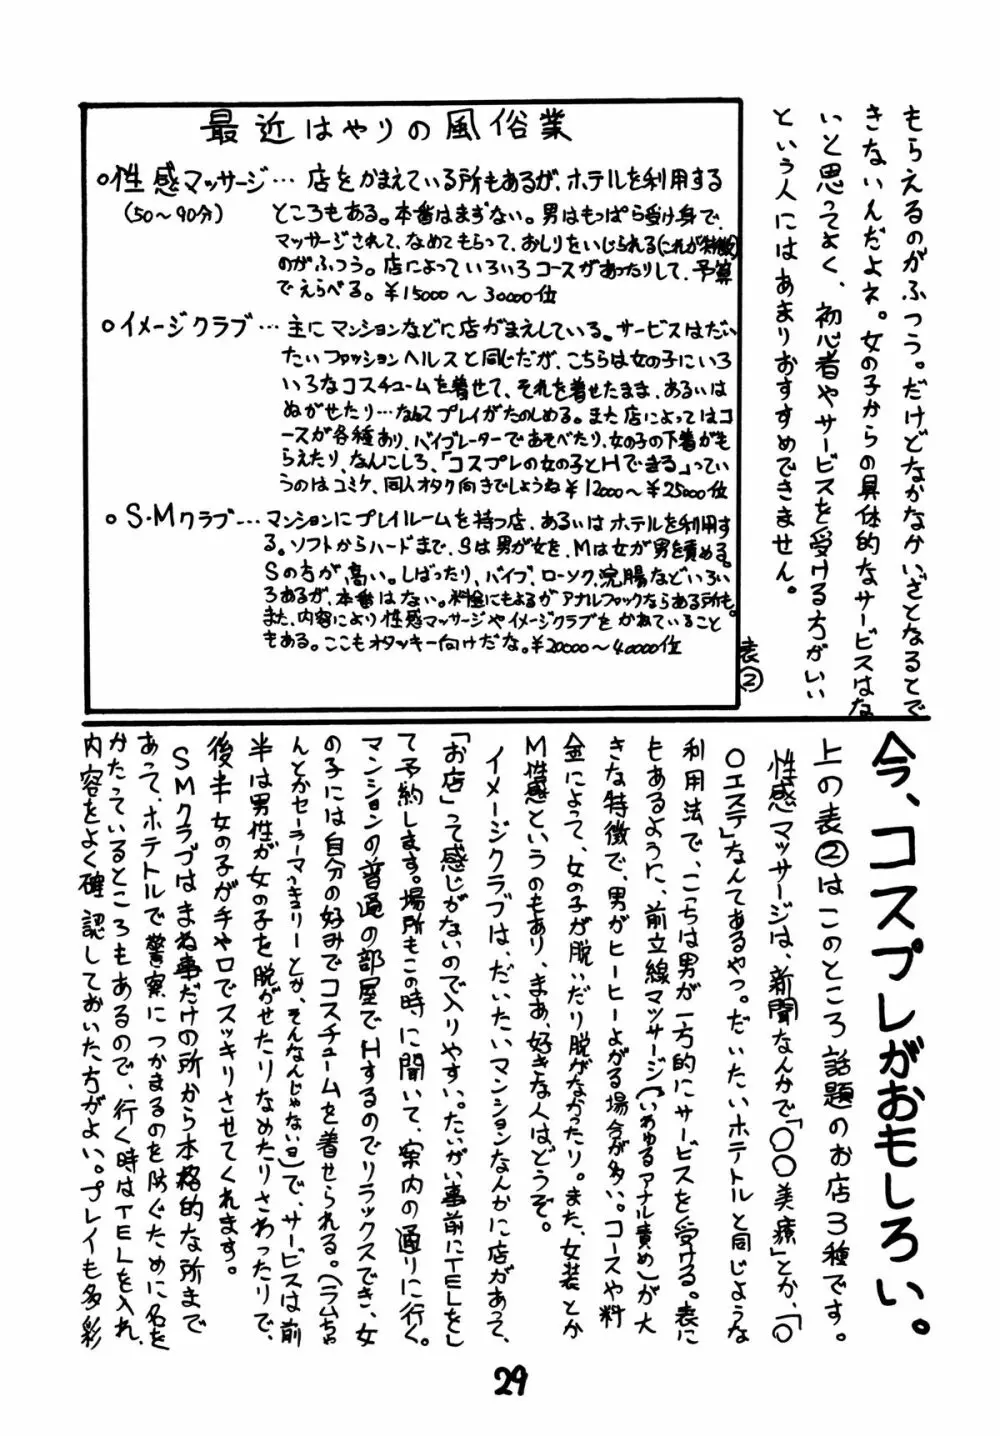 もらえるのがふつう。だけどなかなかいざとなるとで
きないんだよネ。女の子からの具体的なサービスはな
いと思ってよく、初心者やサービスを受ける方がいい
という人にはあまりおすすめできません。
最近はやりの風俗業
○性感マッサージ… 店をかまえている所もあるが、ホテルを利用する
(50〜90分)
ところもある。本番はまずない。男はもっぱら受け身で、
マッサージされて、なめてもらって、おしりをいじられる(これが特徴)
のがふつう。店によっていろいろコースがあったりして、予算
でえらべる。¥15000〜30000位
○イメージクラブ… 主にマンションなどに店がまえしている。サービスはだい
たいファッションヘルスと同じだが、こちらは女の子にいろ
いろなコスチュームを着せて、それを着せたまま、あるいは
ぬがせたり…なんてプレイがたのしめる。また店によってはコ
ースが各種あり、バイブレーターであそべたり、女の子の下着がも
らえたり、なんにしろ、「コスプレの女の子とHできる」ってい
うのはコミケ、同人オタク向きでしょうね¥12000〜¥25000位
○S・Mクラブ… マンションにプレイルームを持つ店、あるいはホテルを利用す
る。ソフトからハードまで、Sは男が女を、Mは女が男を責める。
Sの方が高い。しばったり、バイブ、ローソク、浣腸などいろい
ろあるが、本番はない。料金にもよるがアナルファックならある所も。
また、内容により性感マッサージやイメージクラブをかねていること
もある。ここもオタッキー向けだな。¥20000〜40000位
表②
今、コスプレがおもしろい。
上の表②はこのところ話題のお店3種です。
性感マッサージは、新聞なんかで「○○美療」とか、「○
○エステ」なんてあるやつ。だいたいホテトルと同じような
利用法で、こっちは男が一方的にサービスを受ける。表に
もあるように、前立線マッサージ(いわゆるアナル責め)が大
きな特徴で、男がヒーヒーよがる場合が多い。コースや料
金によって、女の子が脱いだり脱がなかったり。また、女装とか
M性感というのもあり、まあ、好きな人はどうぞ。
イメージクラブは、だいたいマンションなんかに店があって、
「お店」って感じがないので入りやすい。たいがい事前にTELをし
て予約します。場所もこの時に聞いて、案内の通りに行く。
マンションの普通の部屋でHするのでリラックスでき、女
の子には自分の好みでコスチュームを着せられる。(ラムちゃ
んとかセーラーマーキュリーとか、そんなんじゃない日)で、サービスは前
半は男性が女の子を脱がせたりなめたりさわったりで、
後半女の子が手や口でスッキリさせてくれます。
SMクラブはまね事だけの所から本格的な所まで
あって、ホテトルで警察につかまるのを防ぐために名を
かたっているところもあるので、行く時はTELを入れ、
内容をよく確認しておいた方がよい。プレイも多彩
29